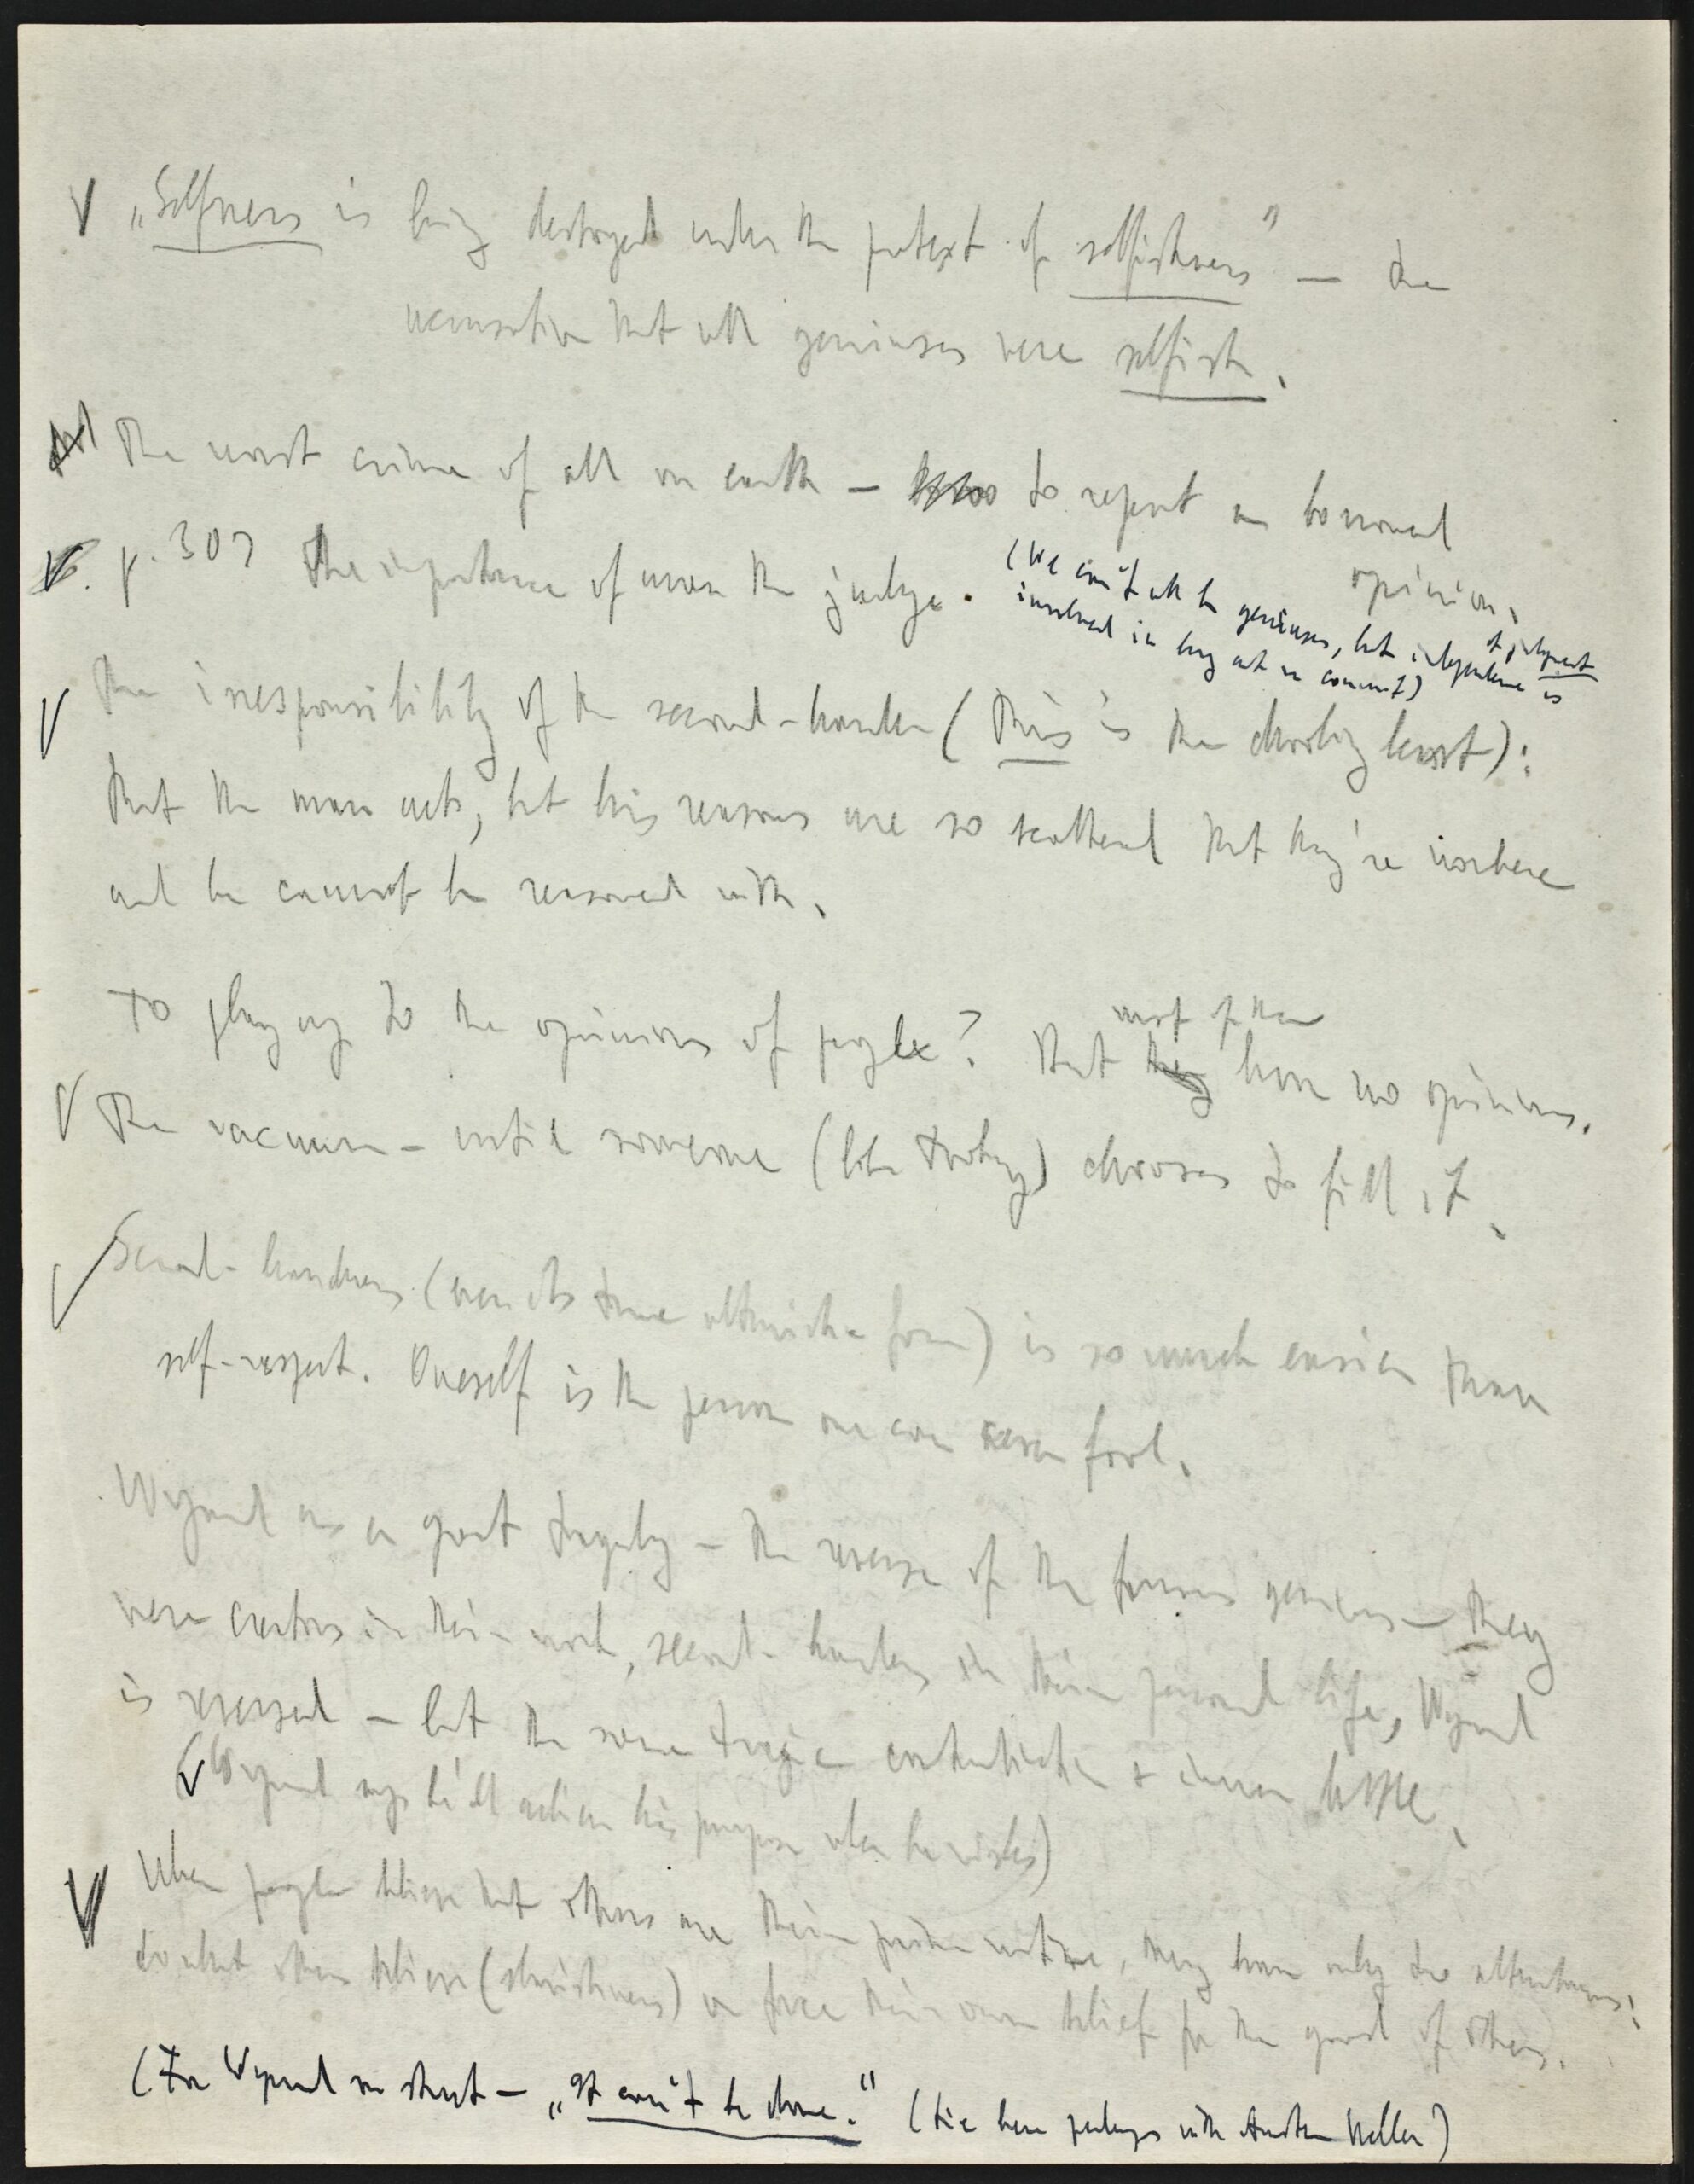 „Selfness is being destroyed under the pretext of selfishness" — the
accusation that all geniuses were selfish.
The worst crime of all on earth — to repeat a borrowed
opinion.
p. 307 The importance of man the judge.
(We can't all be geniuses, but independence of judgment is
involved in any act we commit)
The irresponsibility of the second-hander (this is the drooling beast):
that the man acts, but his reasons are so scattered that they're nowhere
and he cannot be reasoned with.
To play up to the opinions of people? But most of them have no opinions.
The vacuum – until someone (like Toohey) chooses to fill it.
Second-handness (even its true altruistic form) is so much easier than
self-respect. Oneself is the person one can never fool.
Wynand as a great tragedy – the reverse of the famous geniuses — they
were creators in their work, second-handers in their personal life, Wynand
is reversed – but the same tragic contradiction & inner battle.
(Wynand says he'll achieve his purpose when he wishes)
When people believe that others are their prime virtue, they have only two alternatives:
do what others believe (slavishness) or force their own belief for the good of others.
(For Wynand on street – „It can't be done." (tie here perhaps with Austen Heller)